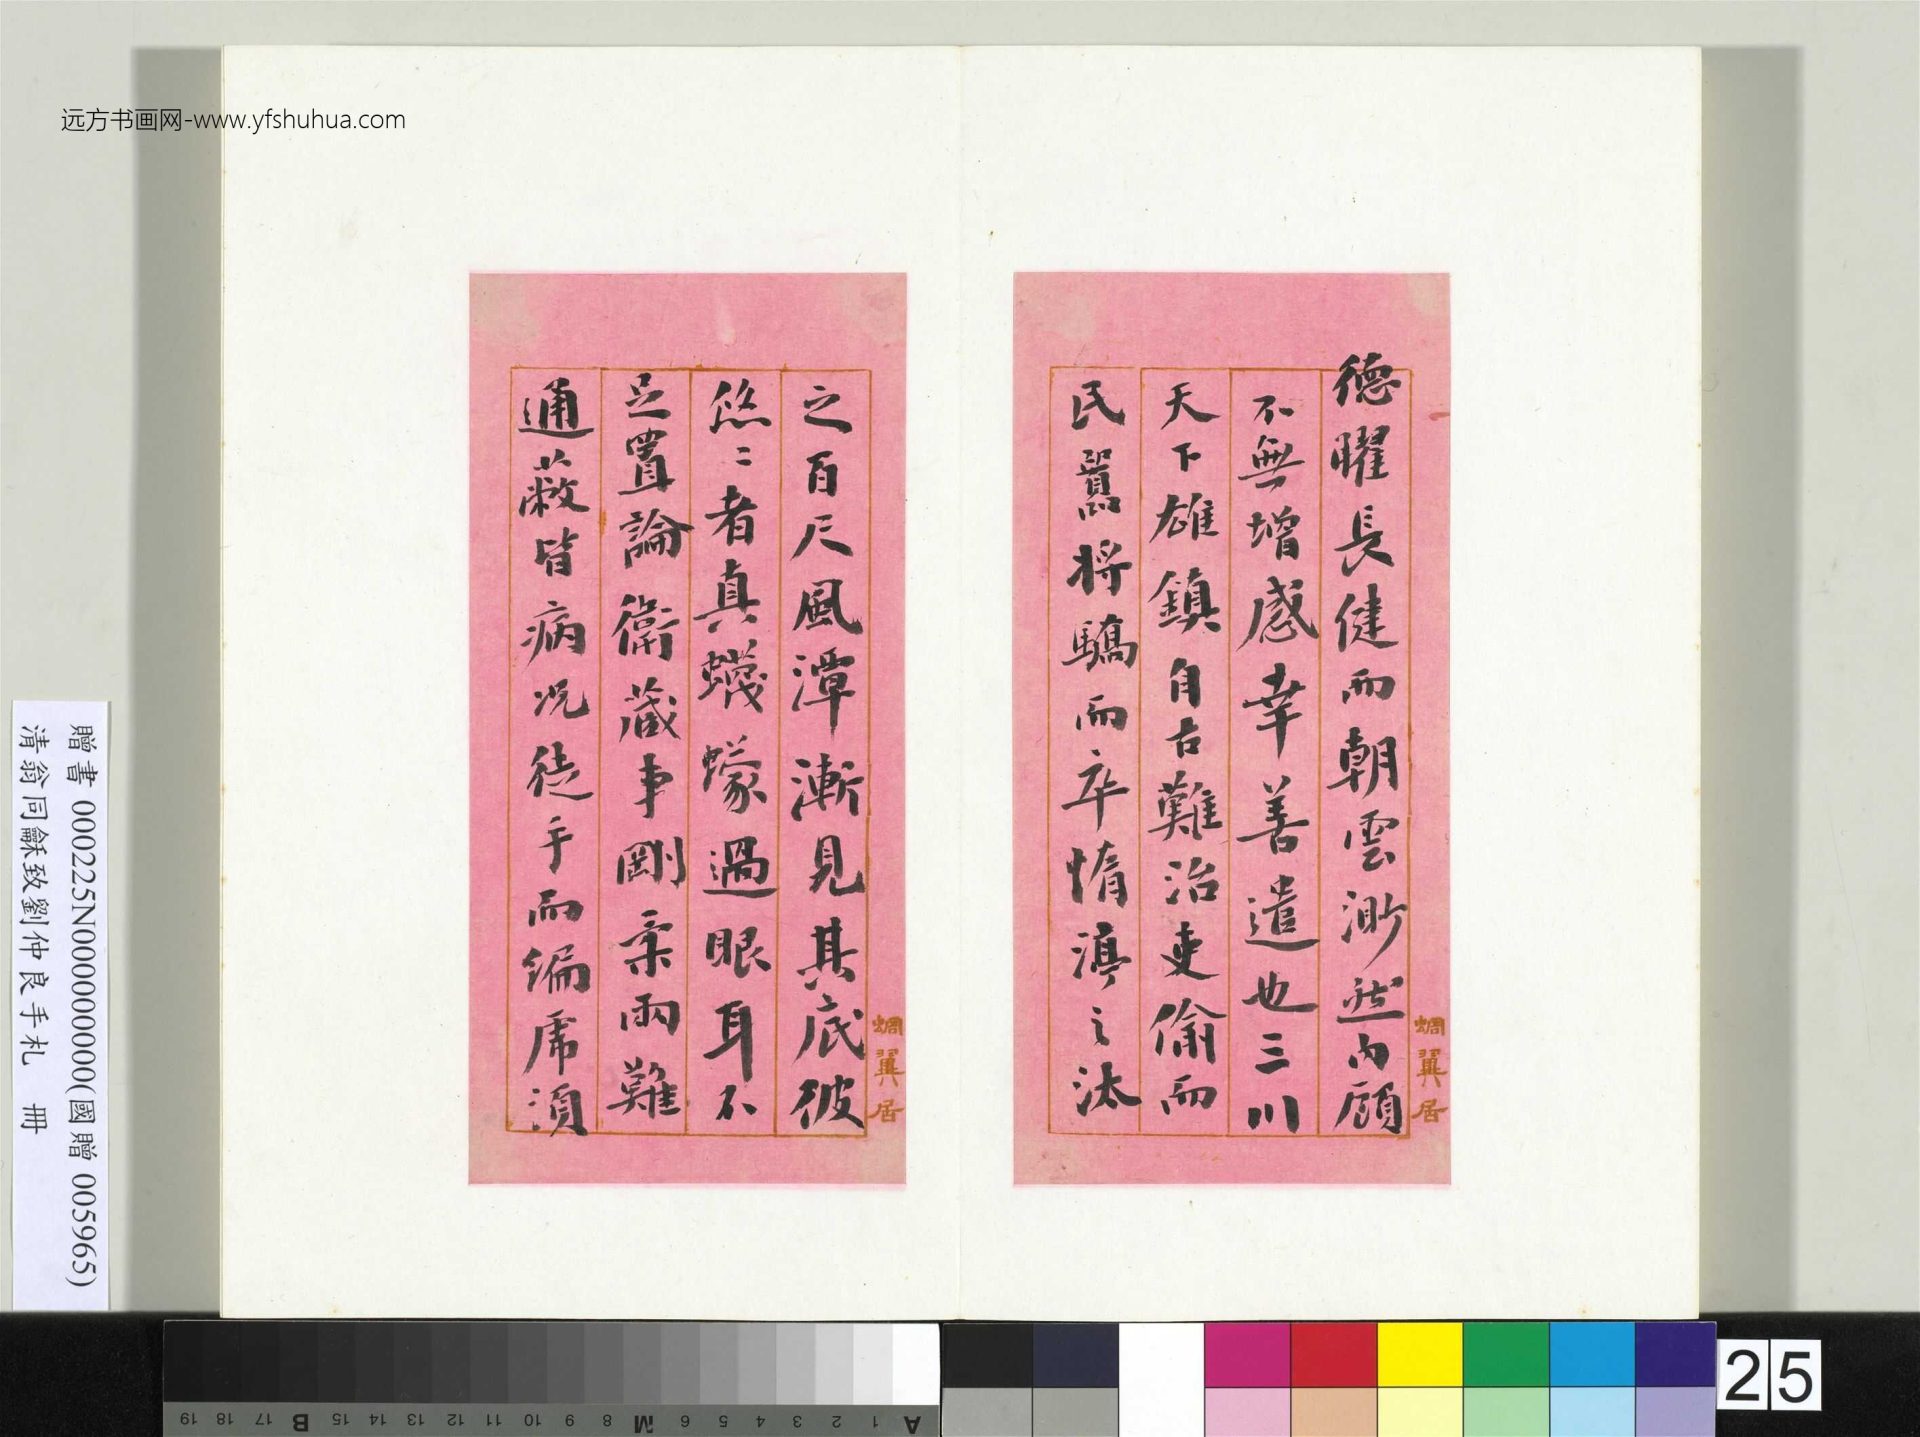 远方书画网-www.yfshuhua.com
德曜長健而朝雲渺然内顧
不無增感幸善遣也三川
天下雄鎮自古難治吏偷而
民囂將驕而卒惰滇之汰
蜩翼居
之百尺風潭漸見其底彼
悠二者真蠛蠓過眼耳不
足置論衛藏事剛柔兩難
通蔽皆病況徒手而編虎須
蜩翼居
贈書 000225N000000000(國贈 005965)
清翁同龢致劉仲良手札 冊
A 1 2 3 4 5 6 M 8 9 10 11 12 13 14 15 B 17 18 19
25